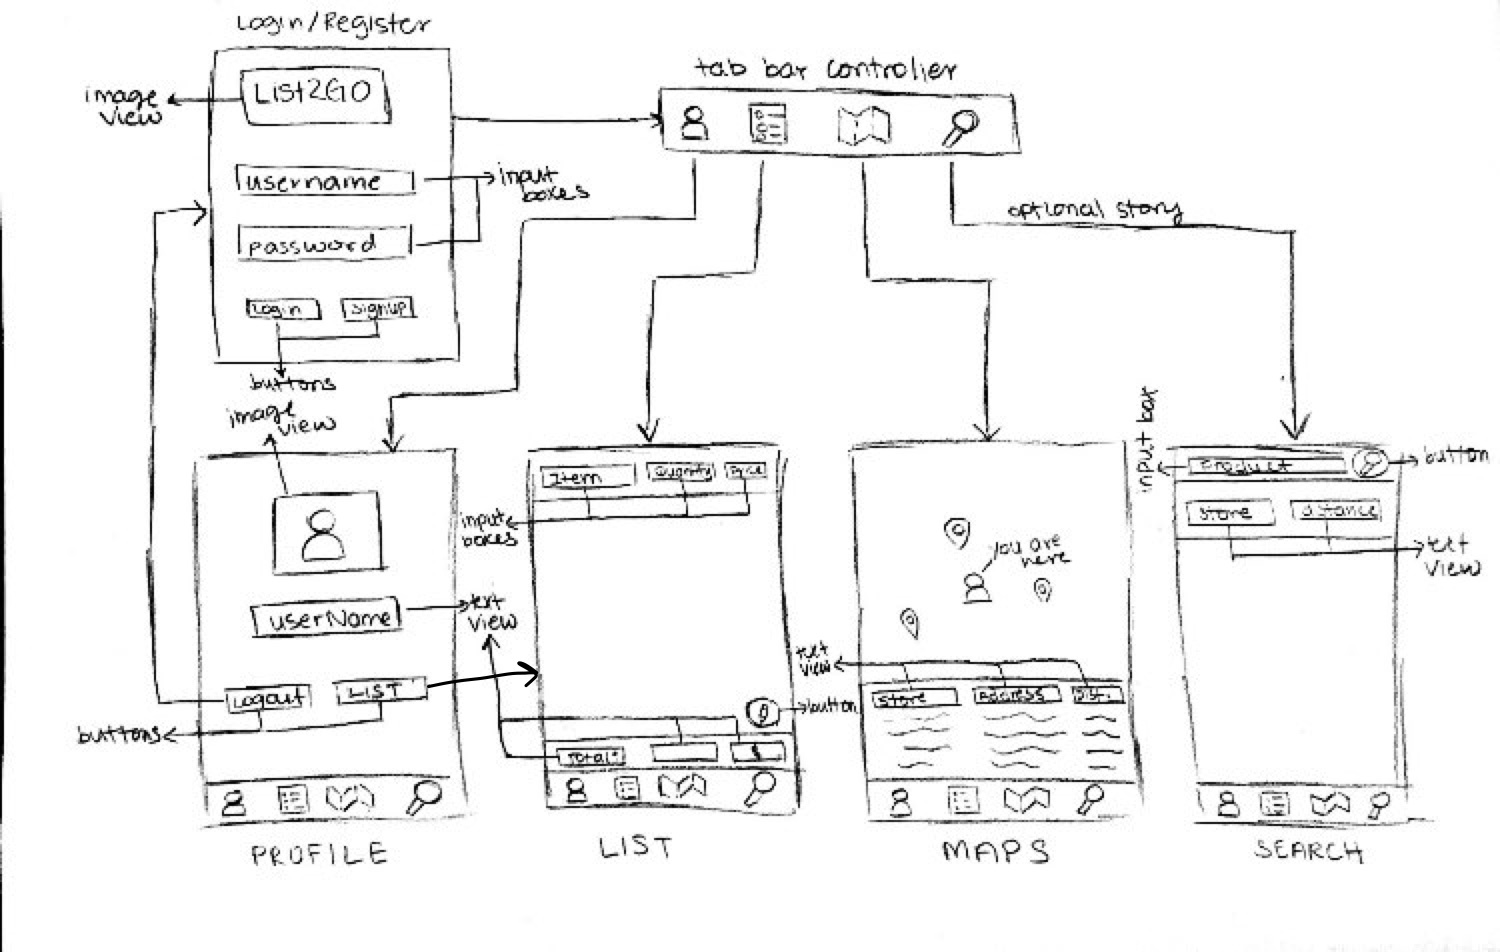 Login/Register
List2GO
image
view
username
input
boxes
password
Login
Signup
buttons
tab bar controller
optional story
image
view
userName
text
view
Logout
LIST
buttons
PROFILE
Item
Quantity
Price
input
boxes
button
Total:
LIST
you are
here
text
view
Store
Address
Dist.
MAPS
input bar
Product
button
Store
distance
text
view
SEARCH